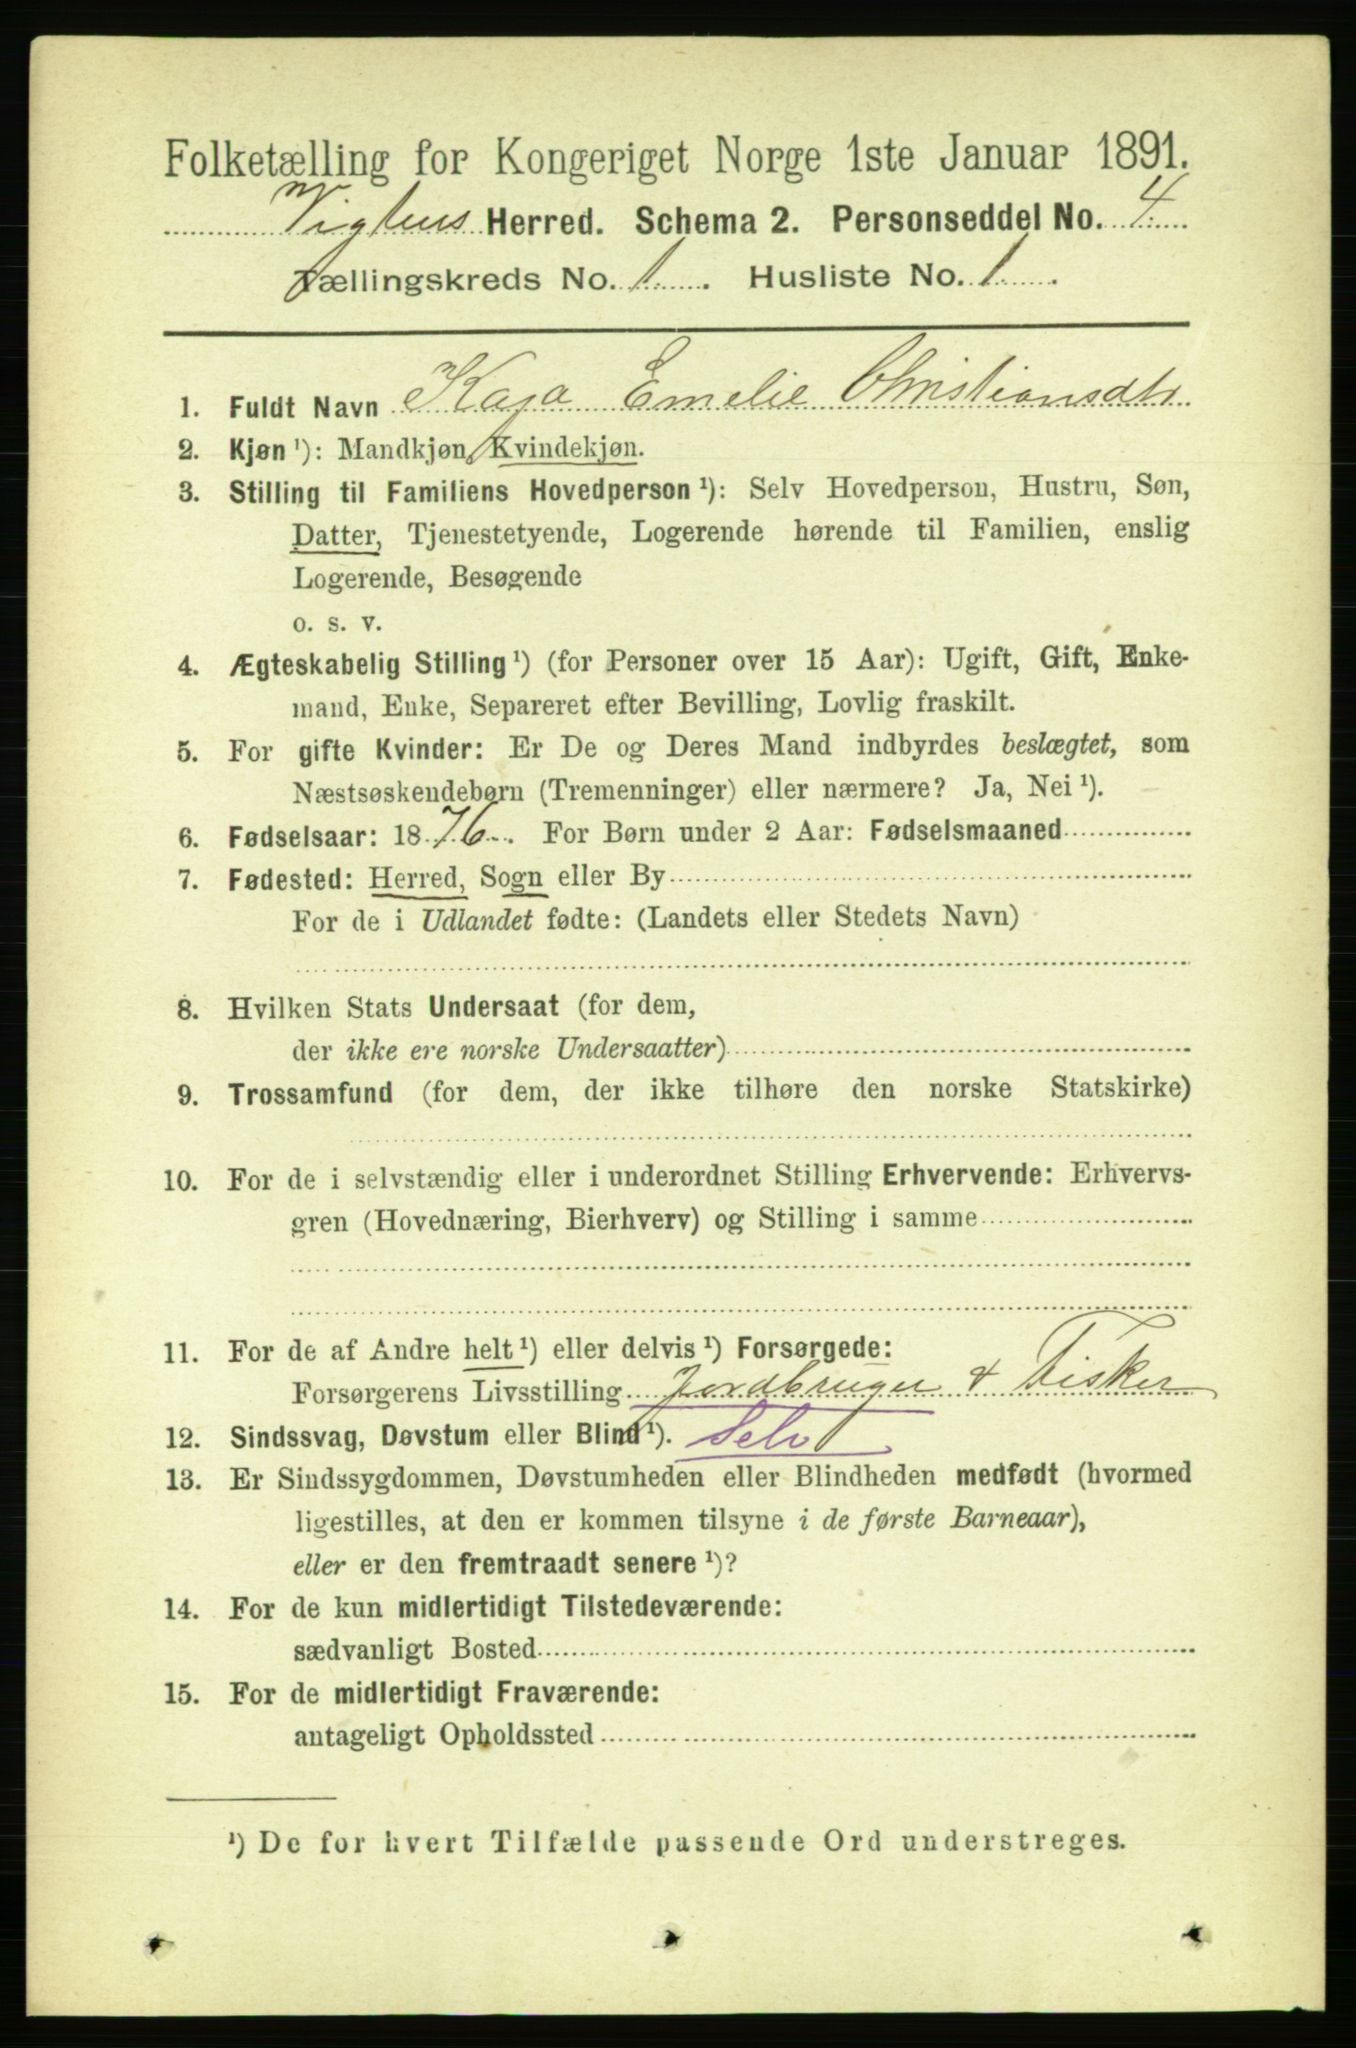 Folketælling for Kongeriget Norge 1ste Januar 1891.
Vigtens Herred. Schema 2. Personseddel No. 4.
Tællingskreds No. 1. Husliste No. 1.
1. Fuldt Navn Kaja Emelie Christiansdtr
2. Kjøn ¹): Mandkjøn, Kvindekjøn.
3. Stilling til Familiens Hovedperson ¹): Selv Hovedperson, Hustru, Søn,
Datter, Tjenestetyende, Logerende hørende til Familien, enslig
Logerende, Besøgende
o. s. v.
4. Ægteskabelig Stilling ¹) (for Personer over 15 Aar): Ugift, Gift, Enke-
mand, Enke, Separeret efter Bevilling, Lovlig fraskilt.
5. For gifte Kvinder: Er De og Deres Mand indbyrdes beslægtet, som
Næstsøskendebørn (Tremenninger) eller nærmere? Ja, Nei ¹).
6. Fødselsaar: 1876. For Børn under 2 Aar: Fødselsmaaned
7. Fødested: Herred, Sogn eller By
For de i Udlandet fødte: (Landets eller Stedets Navn)
8. Hvilken Stats Undersaat (for dem,
der ikke ere norske Undersaatter)
9. Trossamfund (for dem, der ikke tilhøre den norske Statskirke)
10. For de i selvstændig eller i underordnet Stilling Erhvervende: Erhvervs-
gren (Hovednæring, Bierhverv) og Stilling i samme
11. For de af Andre helt ¹) eller delvis ¹) Forsørgede:
Forsørgerens Livsstilling Jordbruger & Fisker
12. Sindssvag, Døvstum eller Blind ¹). Selv
13. Er Sindssygdommen, Døvstumheden eller Blindheden medfødt (hvormed
ligestilles, at den er kommen tilsyne i de første Barneaar),
eller er den fremtraadt senere ¹)?
14. For de kun midlertidigt Tilstedeværende:
sædvanligt Bosted
15. For de midlertidigt Fraværende:
antageligt Opholdssted
¹) De for hvert Tilfælde passende Ord understreges.